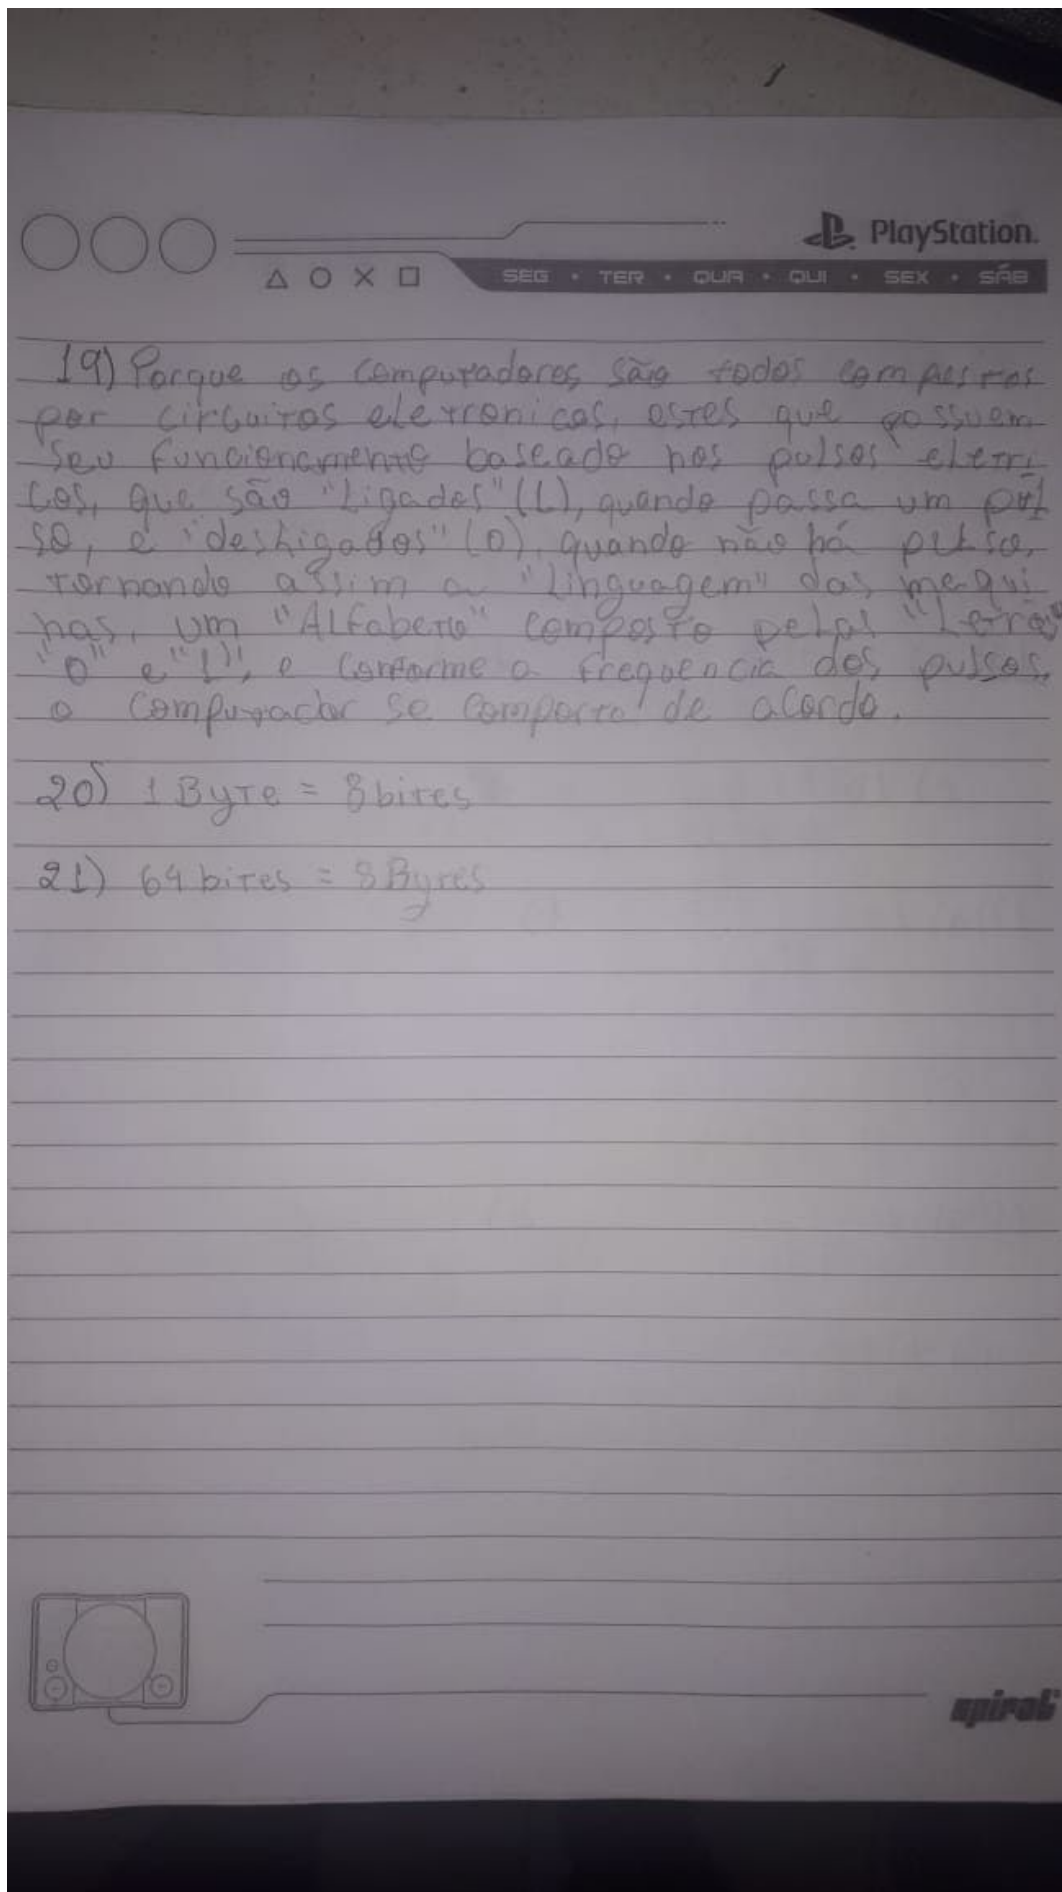 PlayStation.
SEG • TER • QUA • QUI • SEX • SÁB
19) Porque os computadores são todos compostos
por circuitos eletronicos, estes que possuem
seu funcionamento baseado nos pulsos eletri
cos, que são "Ligados" (1), quando passa um pul
so, e "desligados" (0), quando não há pulso,
tornando assim a "Linguagem" das maqui
nas, um "ALfabeto" composto pelas "Letras"
"0" e "1", e conforme a frequencia dos pulsos,
o computador se comporta de acordo.
20) 1 Byte = 8 bites
21) 64 bites = 8 Bytes
spiral